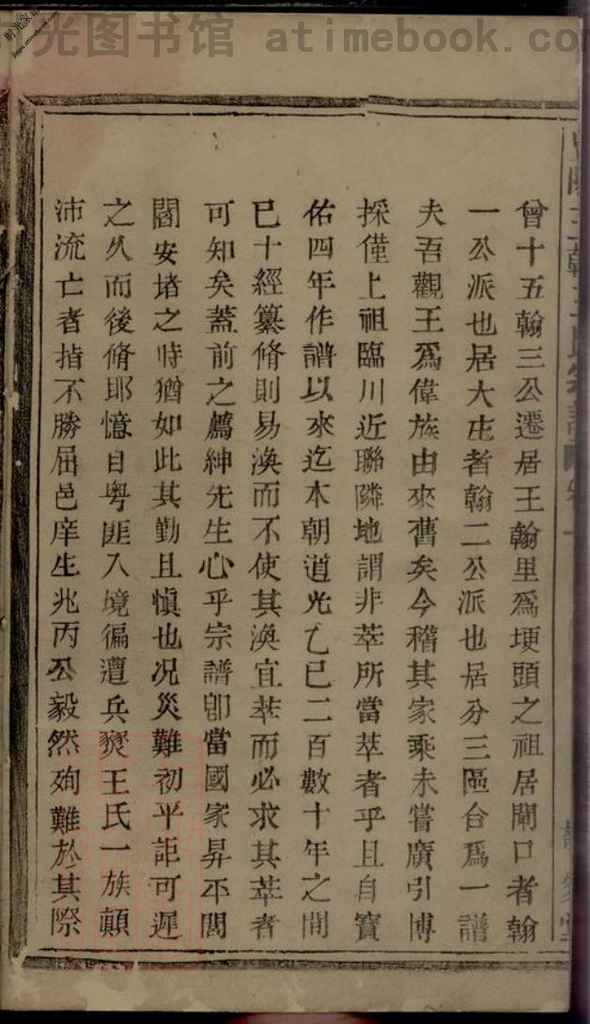 时光图书馆 atimebook.com
曾十五翰三公遷居王翰里爲埂頭之祖居閘口者翰
一公派也居大屯者翰二公派也居分三區合爲一譜
夫吾觀王爲偉族由來舊矣今稽其家乘未嘗廣引博
採僅上祖臨川近聯隣地謂非萃所當萃者乎且自寳
佑四年作譜以來迄本朝道光乙巳二百數十年之間
已十經纂脩則易渙而不使其渙宜萃而必求其萃者
可知矣蓋前之薦紳先生心乎宗譜卽當國家昇平閭
閻安堵之時猶如此其勤且愼也况災難初平詎可遲
之久而後脩耶憶自粤匪入境徧遭兵燹王氏一族顛
沛流亡者指不勝屈邑庠生兆丙公毅然殉難於其際